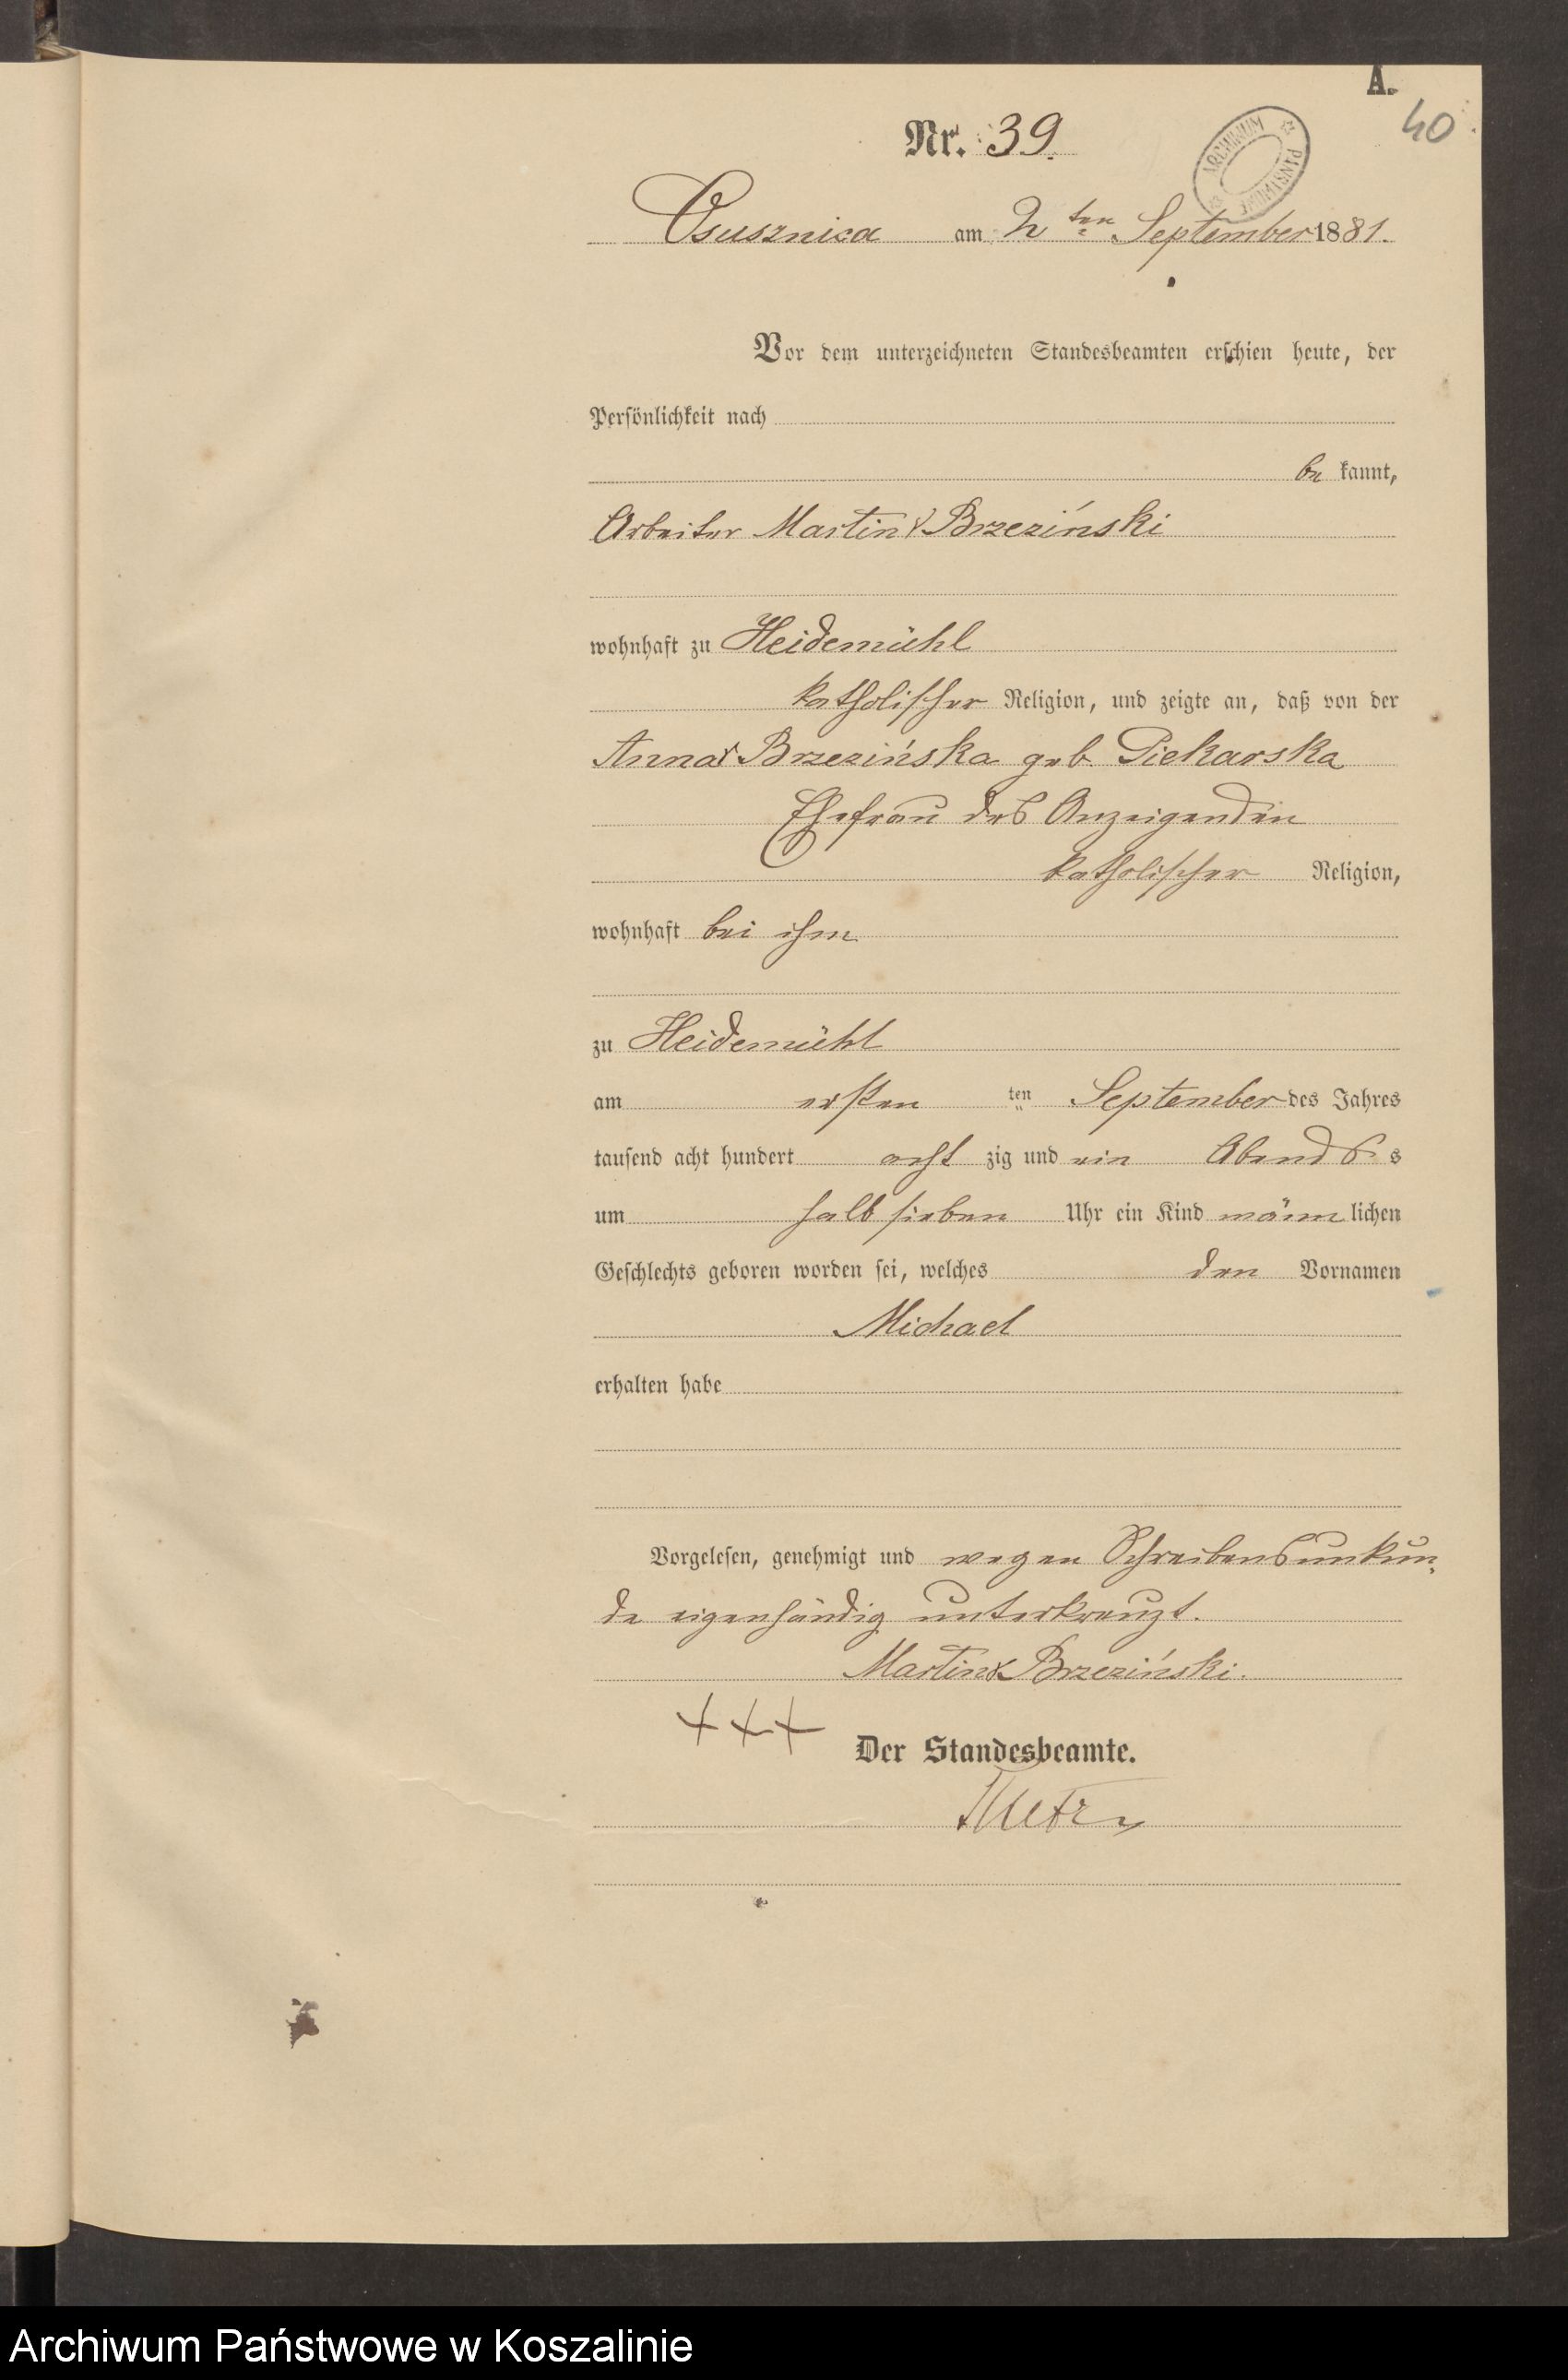 A.
40
Nr. 39.
ARCHIWUM PAŃSTWOWE
Osusznica am 2 ten September 1881.
Vor dem unterzeichneten Standesbeamten erschien heute, der
Persönlichkeit nach
be kannt,
Arbeiter Martin Brzeziński
wohnhaft zu Heidemühl
katholischer Religion, und zeigte an, daß von der
Anna Brzezińska geb. Piekarska
Ehefrau des Anzeigenden
katholischer Religion,
wohnhaft bei ihm
zu Heidemühl
am ersten ten September des Jahres
tausend acht hundert acht zig und ein Abends s
um halb sieben Uhr ein Kind männ lichen
Geschlechts geboren worden sei, welches den Vornamen
Michael
erhalten habe
Vorgelesen, genehmigt und wegen Schreibensunkun-
de eigenhändig unterkreuzt.
Martin Brzeziński.
+++
Der Standesbeamte.
Archiwum Państwowe w Koszalinie